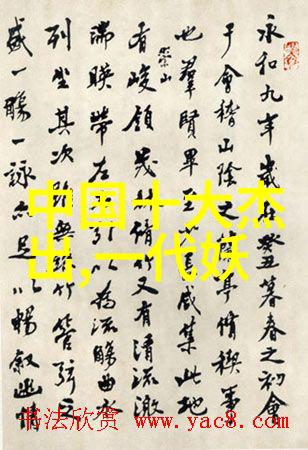 永和九年歲在癸丑暮春之初會
于會稽山陰之亭脩稧事
也羣賢畢至咸集此地
有崇山峻領茂林脩竹又有清流激
湍暎帶左引以為流觴曲水
列坐其次雖無絲竹管弦之
盛一觴一詠亦足以暢敘幽情
中国十大杰
出,一代妖
书法欣赏 www.yac8.com